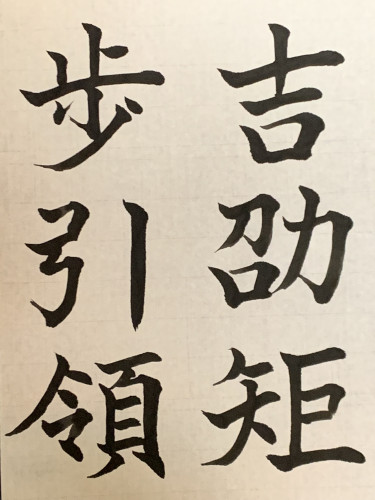 吉劭矩
步引領